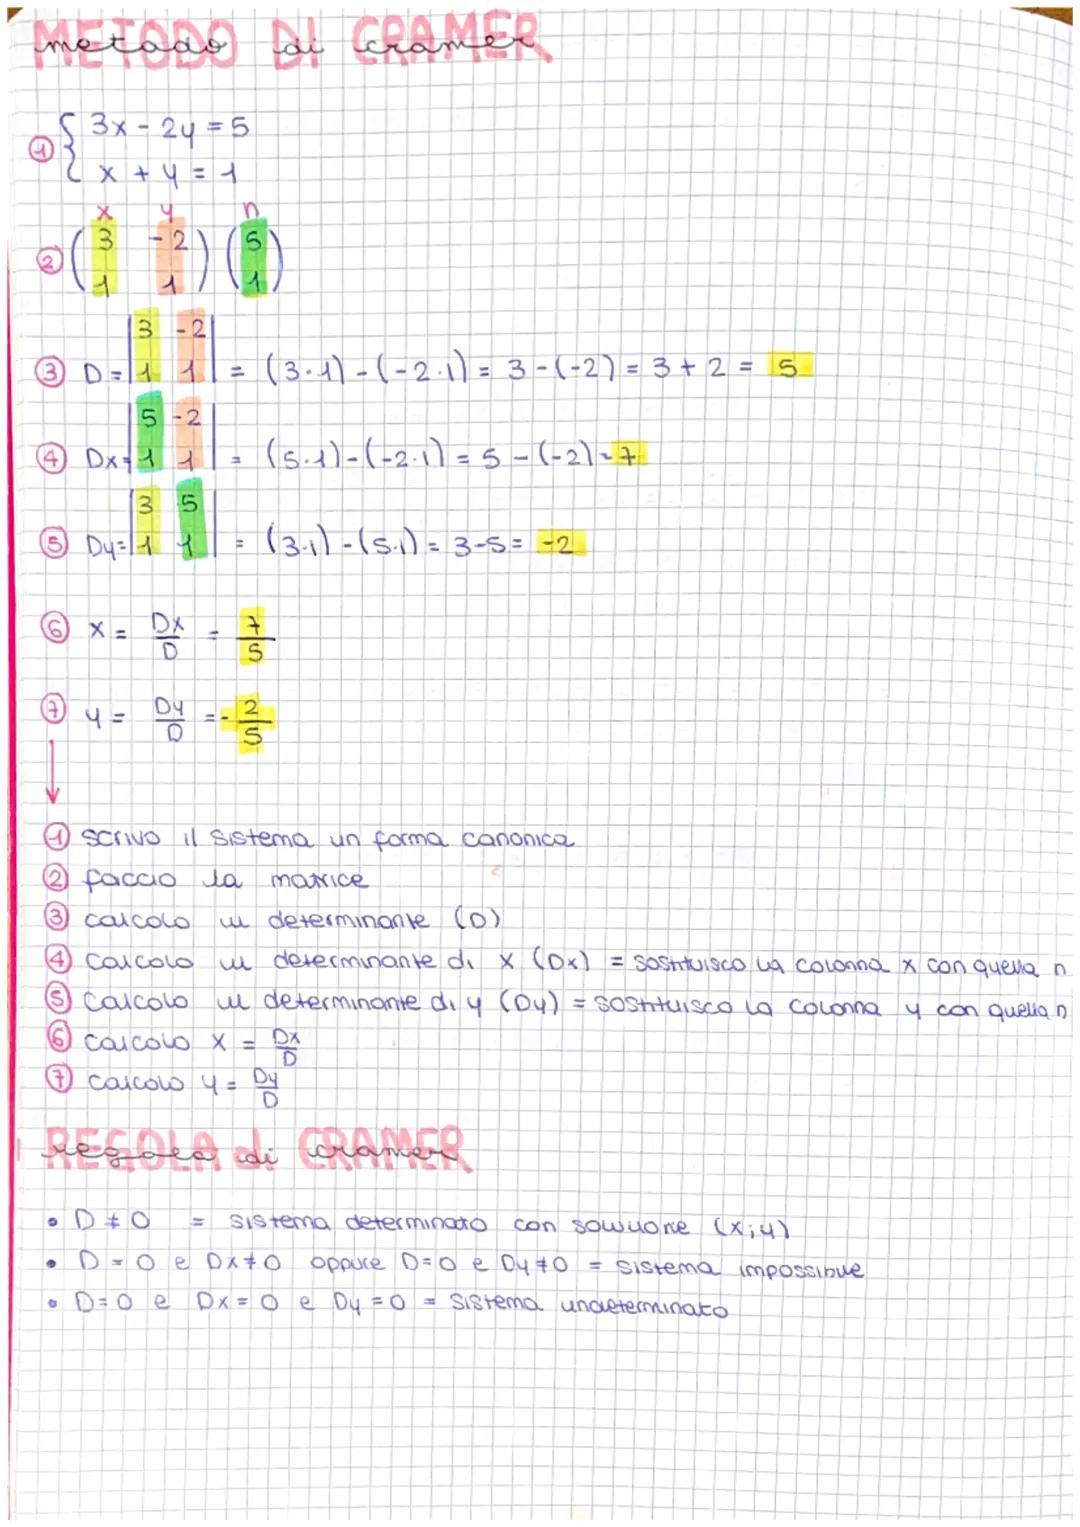 METODO DI CRAMER
metodo di cramer
① { 3x - 2y = 5
x + y = 1
x y n
② ( 3 -2 ) ( 5 )
1 1 1
3 -2
③ D = | 1 1 | = (3·1) - (-2·1) = 3 - (-2) = 3 + 2 = 5
5 -2
④ Dx = | 1 1 | = (5·1) - (-2·1) = 5 - (-2) = 7
3 5
⑤ Dy = | 1 1 | = (3·1) - (5·1) = 3 - 5 = -2
⑥ x = Dx/D = 7/5
⑦ y = Dy/D = - 2/5
① scrivo il sistema un forma canonica
② faccio la matrice
③ calcolo il determinante (D)
④ calcolo il determinante di x (Dx) = sostituisco la colonna x con quella n
⑤ calcolo il determinante di y (Dy) = sostituisco la colonna y con quella n
⑥ calcolo x = Dx/D
⑦ calcolo y = Dy/D
REGOLA di CRAMER
regola di cramer
• D ≠ 0 = sistema determinato con soluzione (x;y)
• D = 0 e Dx ≠ 0 oppure D = 0 e Dy ≠ 0 = sistema impossibile
• D = 0 e Dx = 0 e Dy = 0 = sistema indeterminato